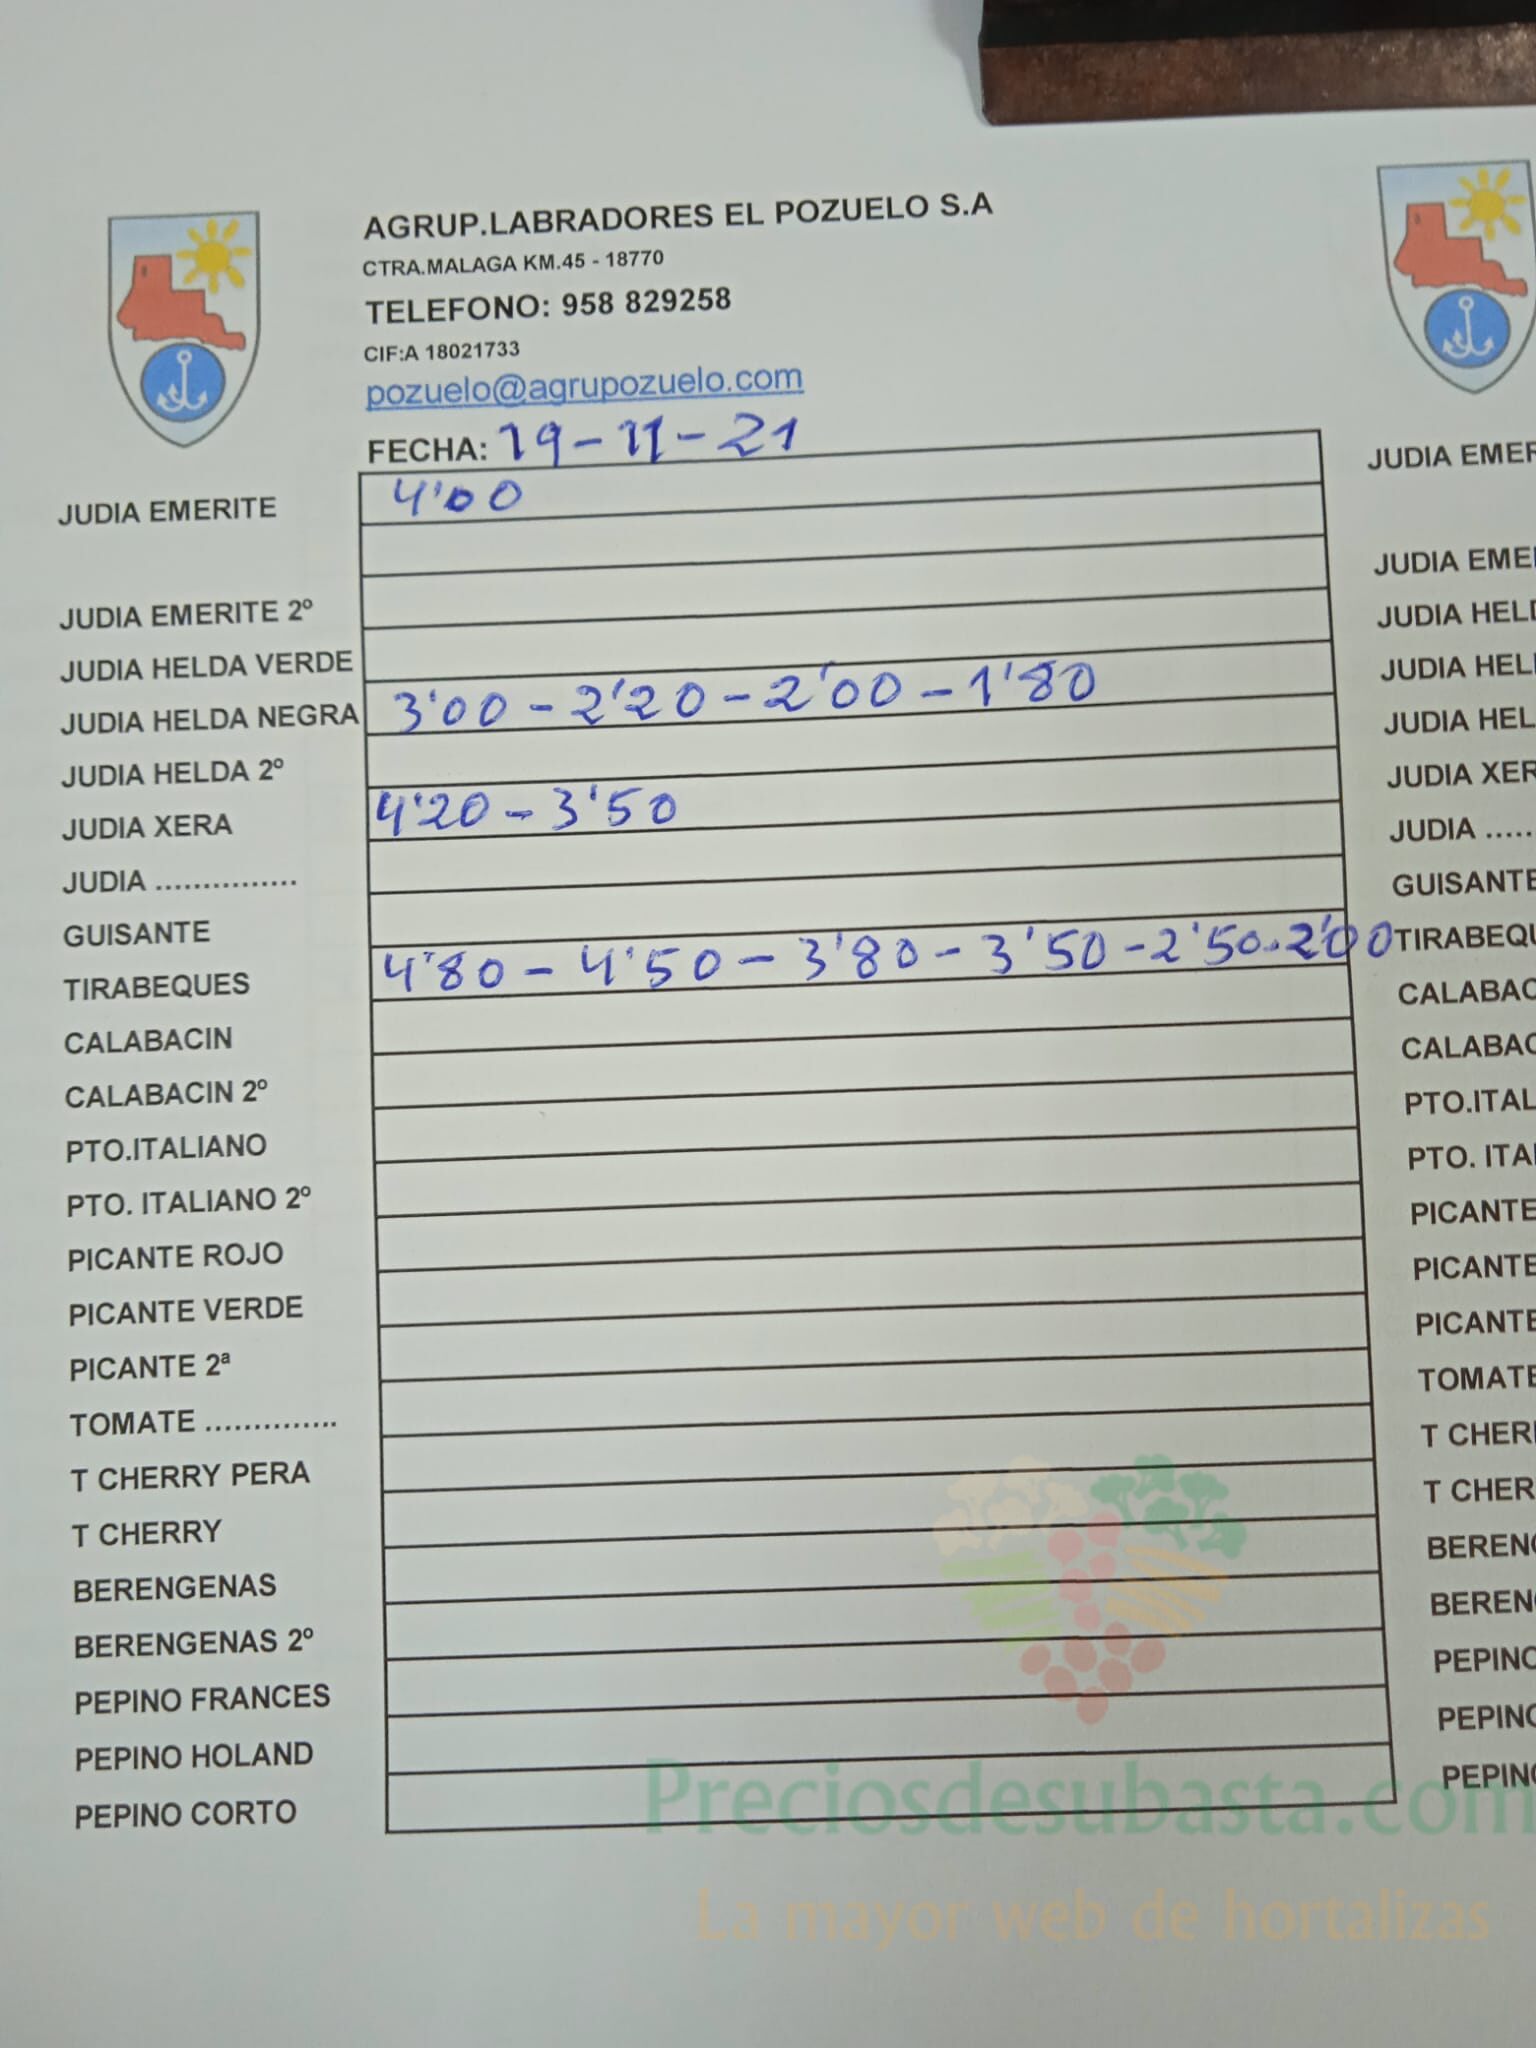 AGRUP.LABRADORES EL POZUELO S.A
CTRA.MALAGA KM.45 - 18770
TELEFONO: 958 829258
CIF:A 18021733
pozuelo@agrupozuelo.com
FECHA: 19-11-21
JUDIA EMERITE 4'00
JUDIA EMERITE 2º
JUDIA HELDA VERDE
JUDIA HELDA NEGRA 3'00 - 2'20 - 2'00 - 1'80
JUDIA HELDA 2º
JUDIA XERA 4'20 - 3'50
JUDIA ...............
GUISANTE
TIRABEQUES 4'80 - 4'50 - 3'80 - 3'50 - 2'50 - 2'00
CALABACIN
CALABACIN 2º
PTO.ITALIANO
PTO. ITALIANO 2º
PICANTE ROJO
PICANTE VERDE
PICANTE 2ª
TOMATE ..............
T CHERRY PERA
T CHERRY
BERENGENAS
BERENGENAS 2º
PEPINO FRANCES
PEPINO HOLAND
PEPINO CORTO
JUDIA EMER
JUDIA EME
JUDIA HELD
JUDIA HEL
JUDIA HEL
JUDIA XER
JUDIA .....
GUISANTE
TIRABEQU
CALABAC
CALABAC
PTO.ITAL
PTO. ITA
PICANTE
PICANTE
PICANTE
TOMATE
T CHER
T CHER
BEREN
BEREN
PEPINO
PEPINO
PEPINO
Preciosdesubasta.com
La mayor web de hortalizas